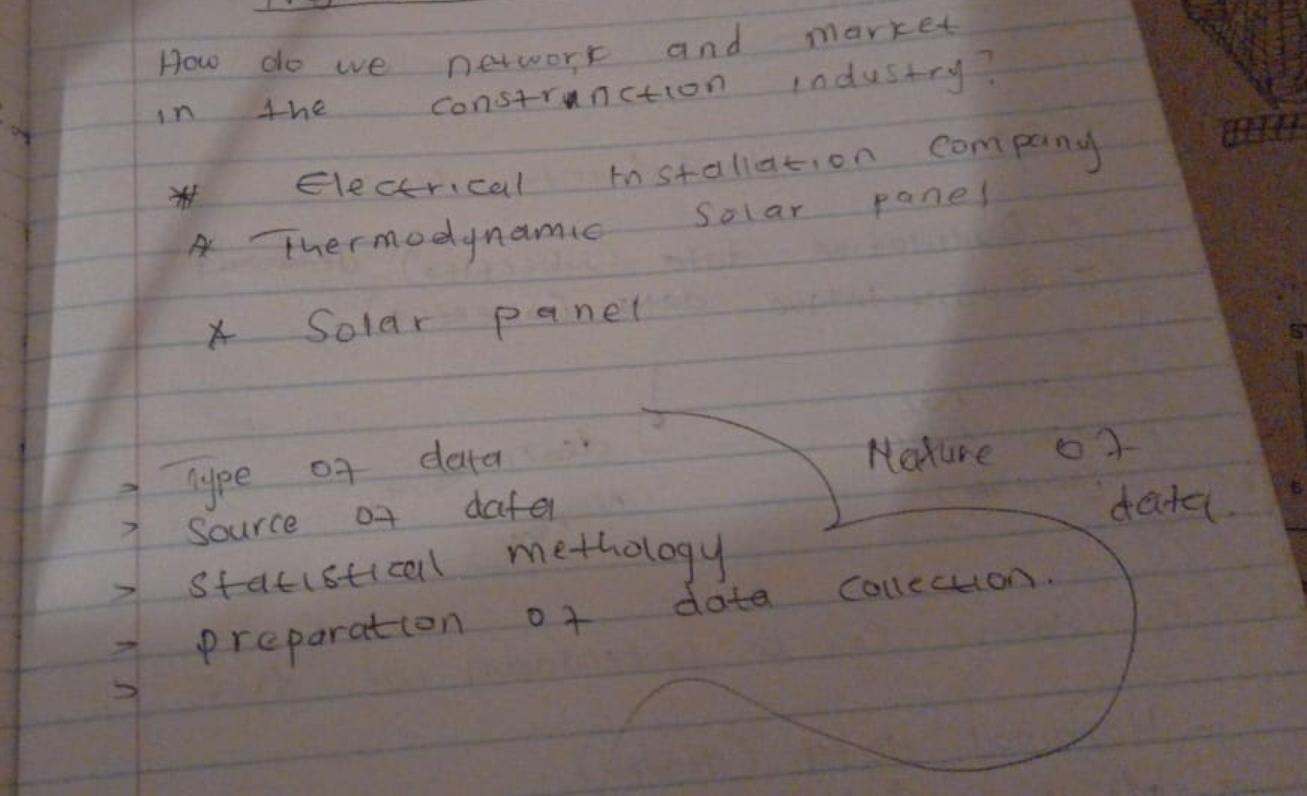 How do we network and market
in the construnction industry?
* Electrical Installation company
* Thermodynamic Solar panel
* Solar panel
> Type of data
> Source of data
> Statistical methology
> preparation of data collection.
>
Nature of
data.